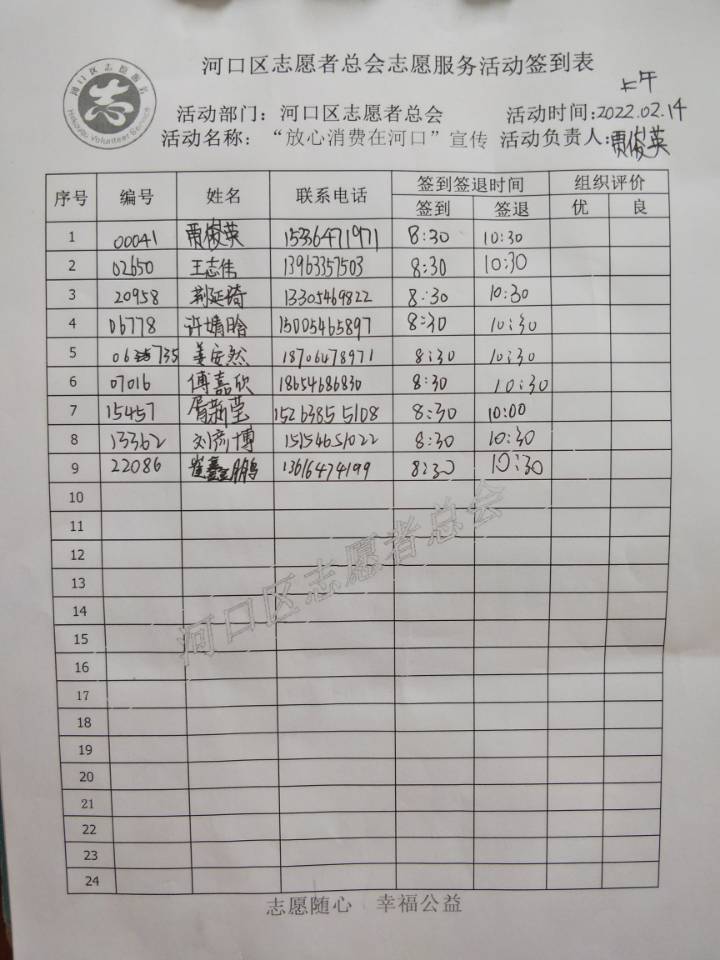 河口区志愿者总会志愿服务活动签到表
上午
活动部门：河口区志愿者总会 活动时间：2022.02.14
活动名称：“放心消费在河口”宣传 活动负责人：贾俊英
序号 编号 姓名 联系电话 签到签退时间 组织评价
签到 签退 优 良
1 00041 贾俊英 15336471971 8:30 10:30
2 02650 王志伟 13963357503 8:30 10:30
3 20958 荆延琦 13305469822 8:30 10:30
4 06778 许婧晗 15005465897 8:30 10:30
5 06735 姜安然 18706478971 8:30 10:30
6 07016 傅嘉欣 18654686830 8:30 10:30
7 15457 胥新莹 15263855108 8:30 10:00
8 13362 刘彦博 15154651022 8:30 10:30
9 22086 崔鑫鹏 13616474199 8:30 10:30
10
11
12
13
14
15
16
17
18
19
20
21
22
23
24
河口区志愿者总会
志愿随心 幸福公益